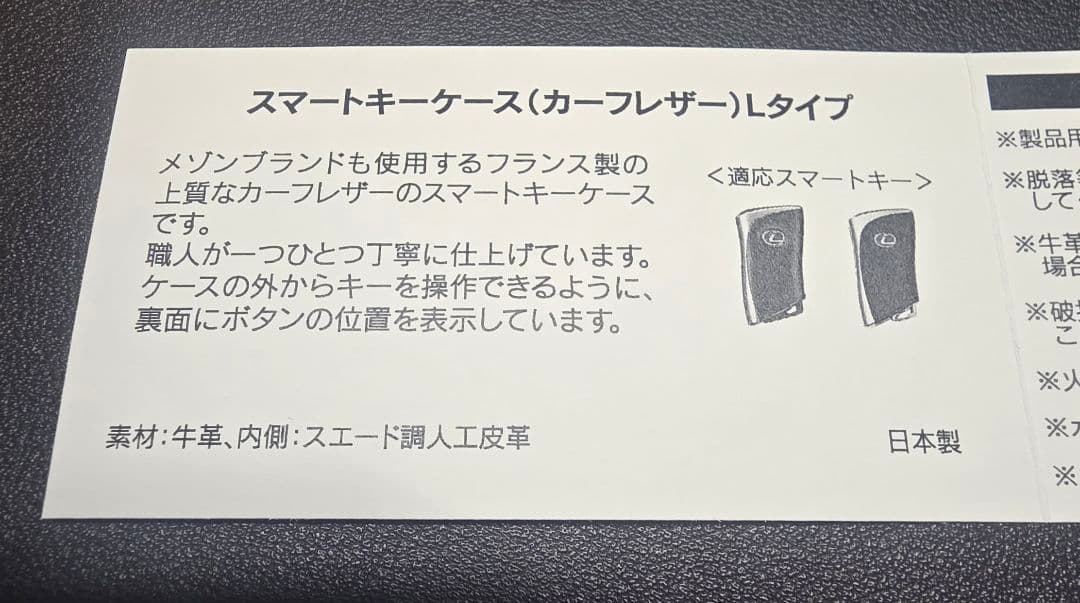 スマートキーケース(カーフレザー)Lタイプ
メゾンブランドも使用するフランス製の
上質なカーフレザーのスマートキーケース
です。
職人が一つひとつ丁寧に仕上げています。
ケースの外からキーを操作できるように、
裏面にボタンの位置を表示しています。
<適応スマートキー>
素材:牛革、内側:スエード調人工皮革
日本製
※製品用
※脱落
して
※牛革
場合
※破
こ
※火
※
※